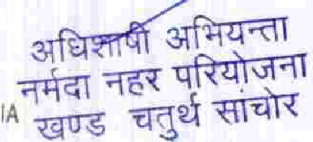 अधिशाषी अभियन्ता
नर्मदा नहर परियोजना
1A खण्ड चतुर्थ सांचोर